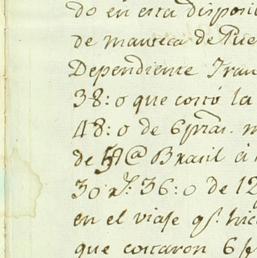 do en esta disposici
de manteca de Pue
Dependiente Fran
38: o que costó la
48: o de 6 pzas.
de @ Brasil á
30 rs. 36: o de 12
en el viaje qe. hic
que costaron 6